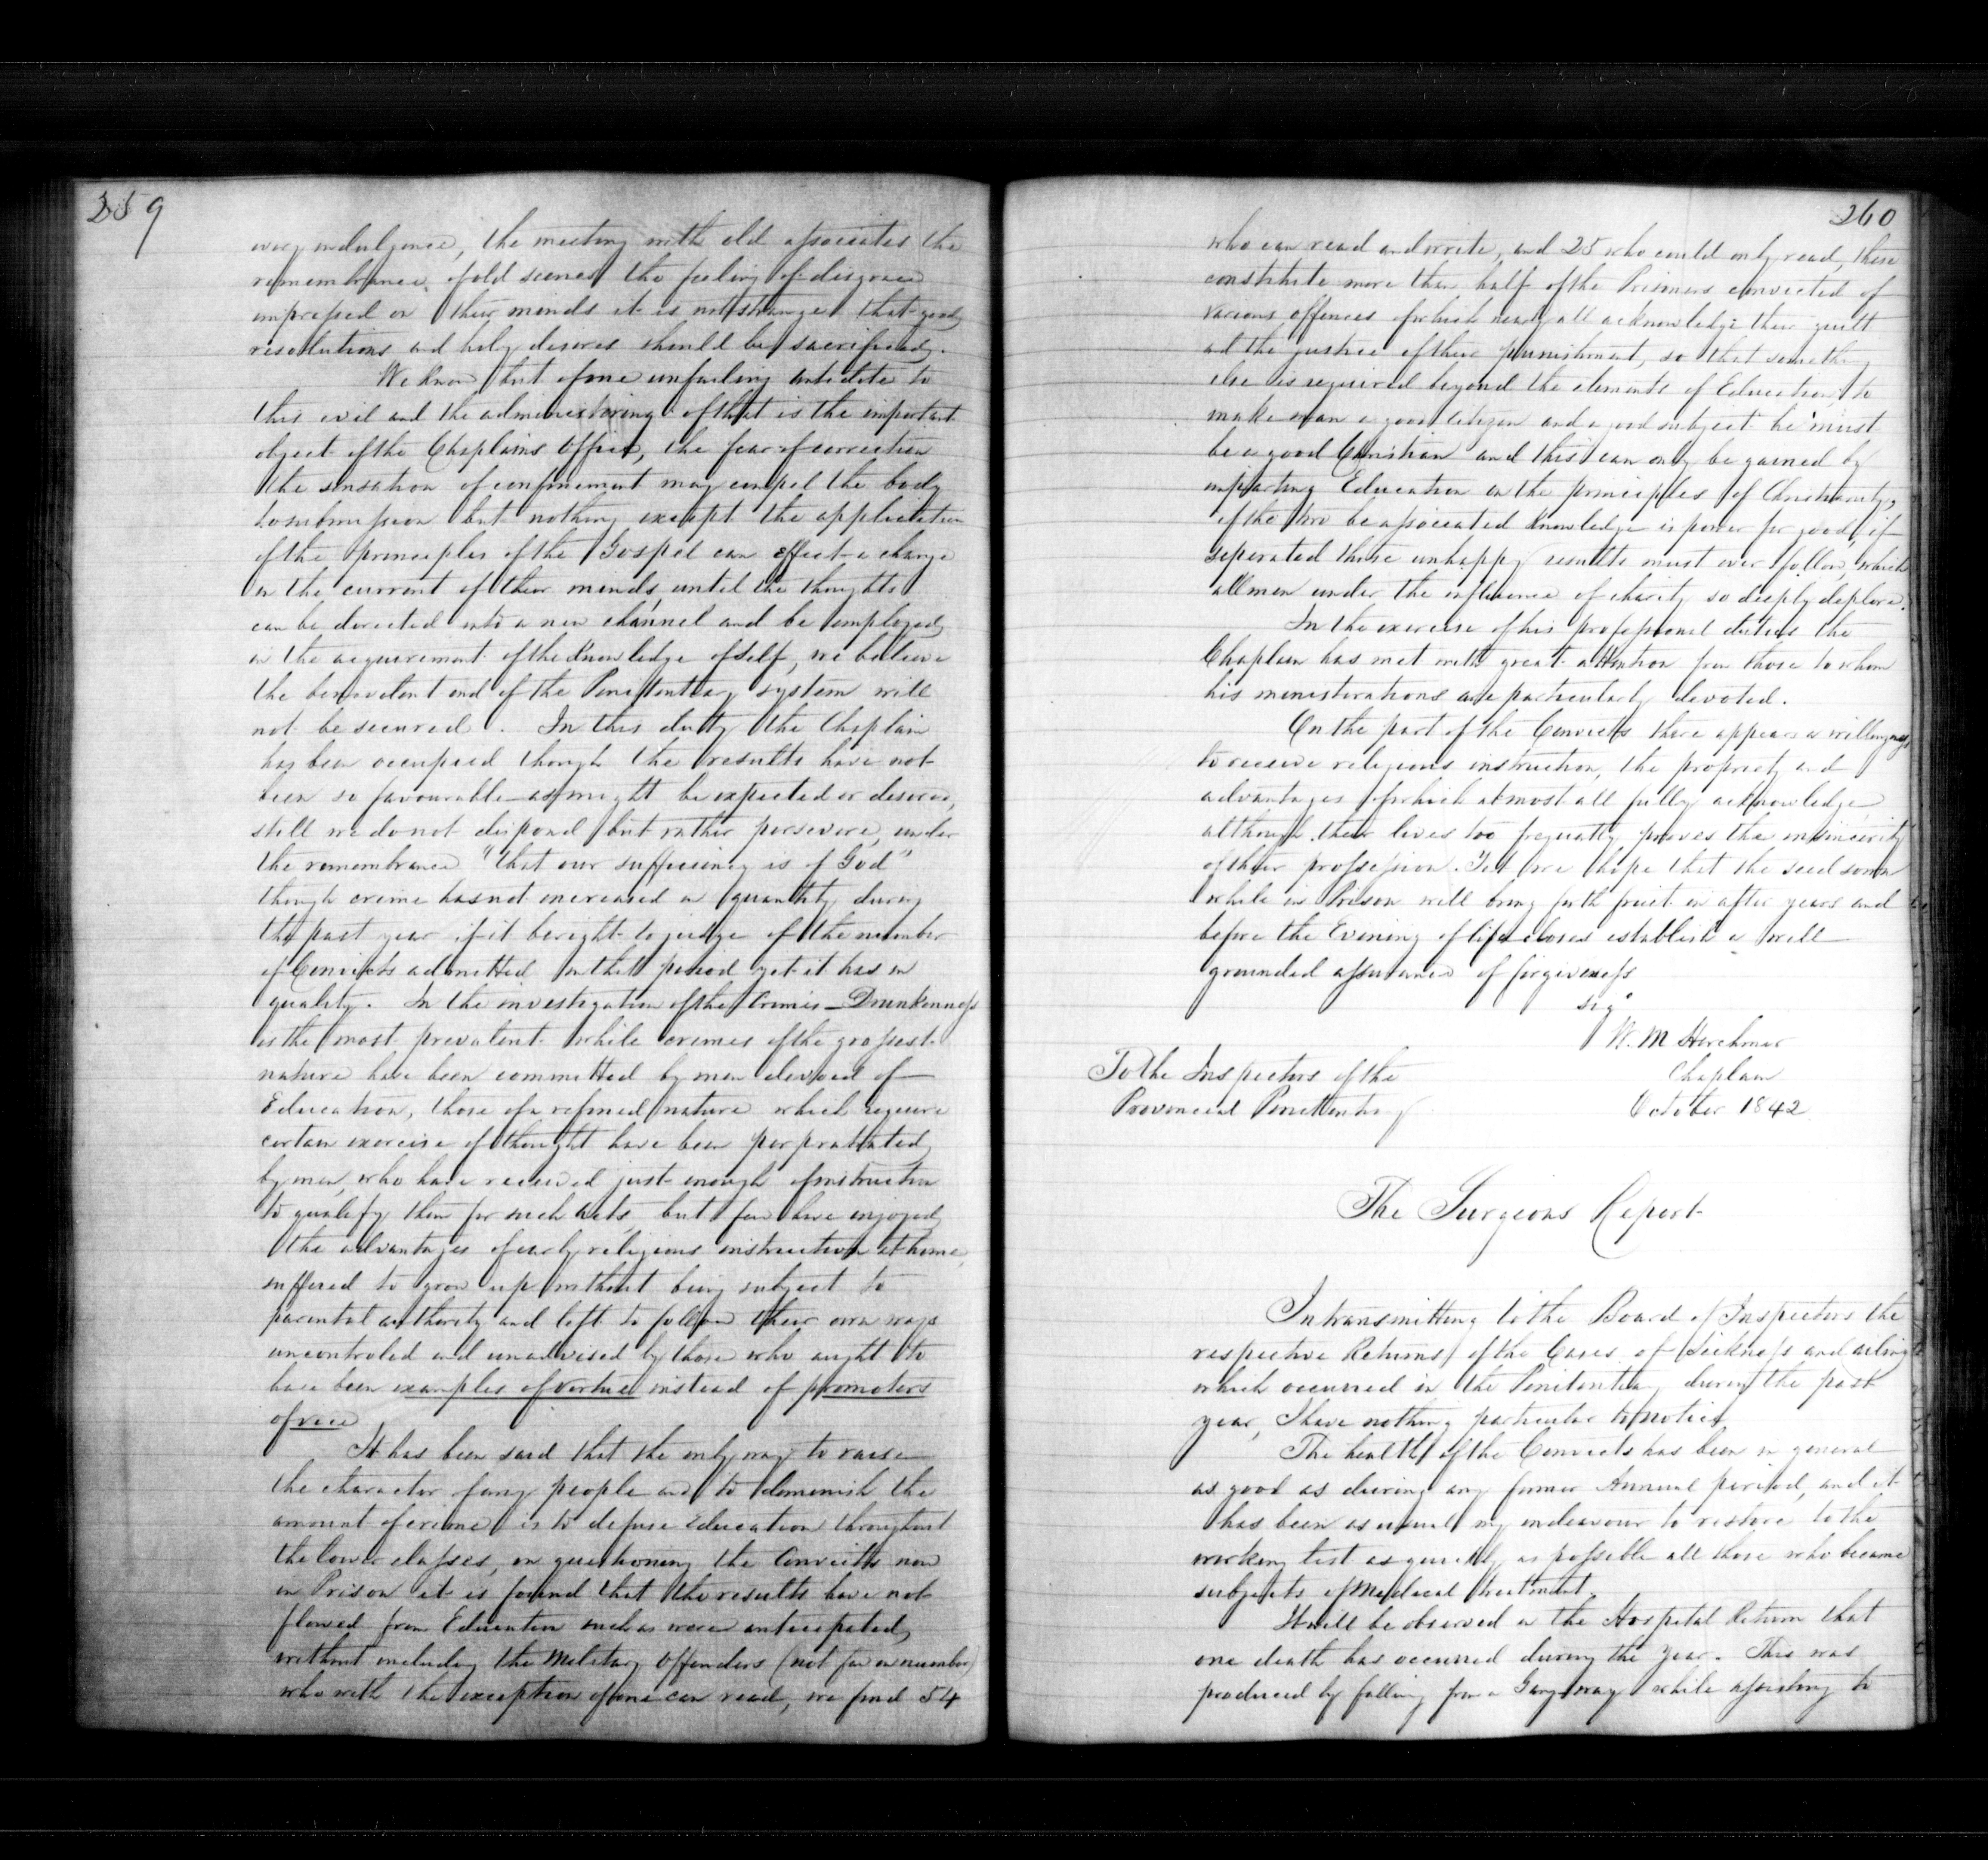 359
every indulgence, the meeting with old associates the
remembrance of old scenes the feeling of disgrace
impressed on their minds it is not strange that good
resolutions and holy desires should be sacrificed.
We know but of one unfailing antidote to
this evil and the administering of that is the important
object of the Chaplains Office, the fear of correction
the sensation of confinement may compel the body
to submission but nothing except the application
of the principles of the Gospel can effect a change
in the current of their minds, until the thoughts
can be directed into a new channel and be employed
in the acquirement of the Knowledge of self, we believe
the benevolent end of the Penitentiary system will
not be secured. In this duty the Chaplain
has been occupied though the results have not
been so favourable as might be expected or desired,
still we do not dispond but rather persevere, under
the remembrance "that our sufficiency is of God"
though crime has not increased in quantity during
the past year if it be right to judge of the number
of Convicts admitted in that period yet it has in
quality. In the investigation of the Crimes – Drunkenness
is the most prevalent while crimes of the grossest
nature have been committed by men devoid of
Education, those of a refined nature which require
certain exercise of thought have been perpratrated
by men, who have received just enough of instruction
to qualify them for such acts, but few have enjoyed
the advantages of early religious instruction at home,
suffered to grow up without being subject to
parental authority and left to follow their own ways
uncontroled and unadvised by those who aught to
have been examples of vertue instead of promoters
of vice
It has been said that the only way to raise
the character of any people and to diminish the
amount of crime is to defuse Education throughout
the lower classes, on questioning the Convicts now
in Prison it is found that the results have not
flowed from Education such as were anticipated,
without including the Military Offenders (not few in number)
who with the exception of one can read, we find 54
260
who can read and write, and 25 who could only read, these
constitute more than half of the Prisoners convicted of
various offences of which nearly all acknowledge their guilt
and the justice of their punishment, so that something
else is required beyond the elements of Education, to
make man a good citizen and a good subject he must
be a good Christian and this can only be gained by
imparting Education in the principles of Christianity,
if the two be associated knowledge is power for good, if
seperated those unhappy results must ever follow, which
all men under the influence of charity so deeply deplore.
In the exercise of his professional duties the
Chaplain has met with great attention from those to whom
his ministerations are particularly devoted.
On the part of the Convicts there appears a willingness
to receive religious instruction, the propriety and
advantages of which almost all fully acknowledge,
although their lives too frequently proves the insincerity
of their profession. Yet we hope that the seed sown
while in Prison will bring forth fruit in after years and
before the Evening of life closes establish a well
grounded assurance of forgiveness
Sigd
W. M Herchmer
Chaplain
October 1842
To the Inspectors of the
Provincial Penitentiary
The Surgeons Report
In transmitting to the Board of Inspectors the
respective Returns of the Cases of Sickness and ailing
which occurred in the Penitentiary during the past
year, I have nothing particular to notice.
The health of the Convicts has been in general
as good as during any former Annual period, and it
has been as usual my endeavour to restore to the
working list as quickly as possible all those who became
subjects of Medical treatment.
It will be observed in the Hospital Return that
one death has occurred during the year. This was
produced by falling from a Gangway while assisting to